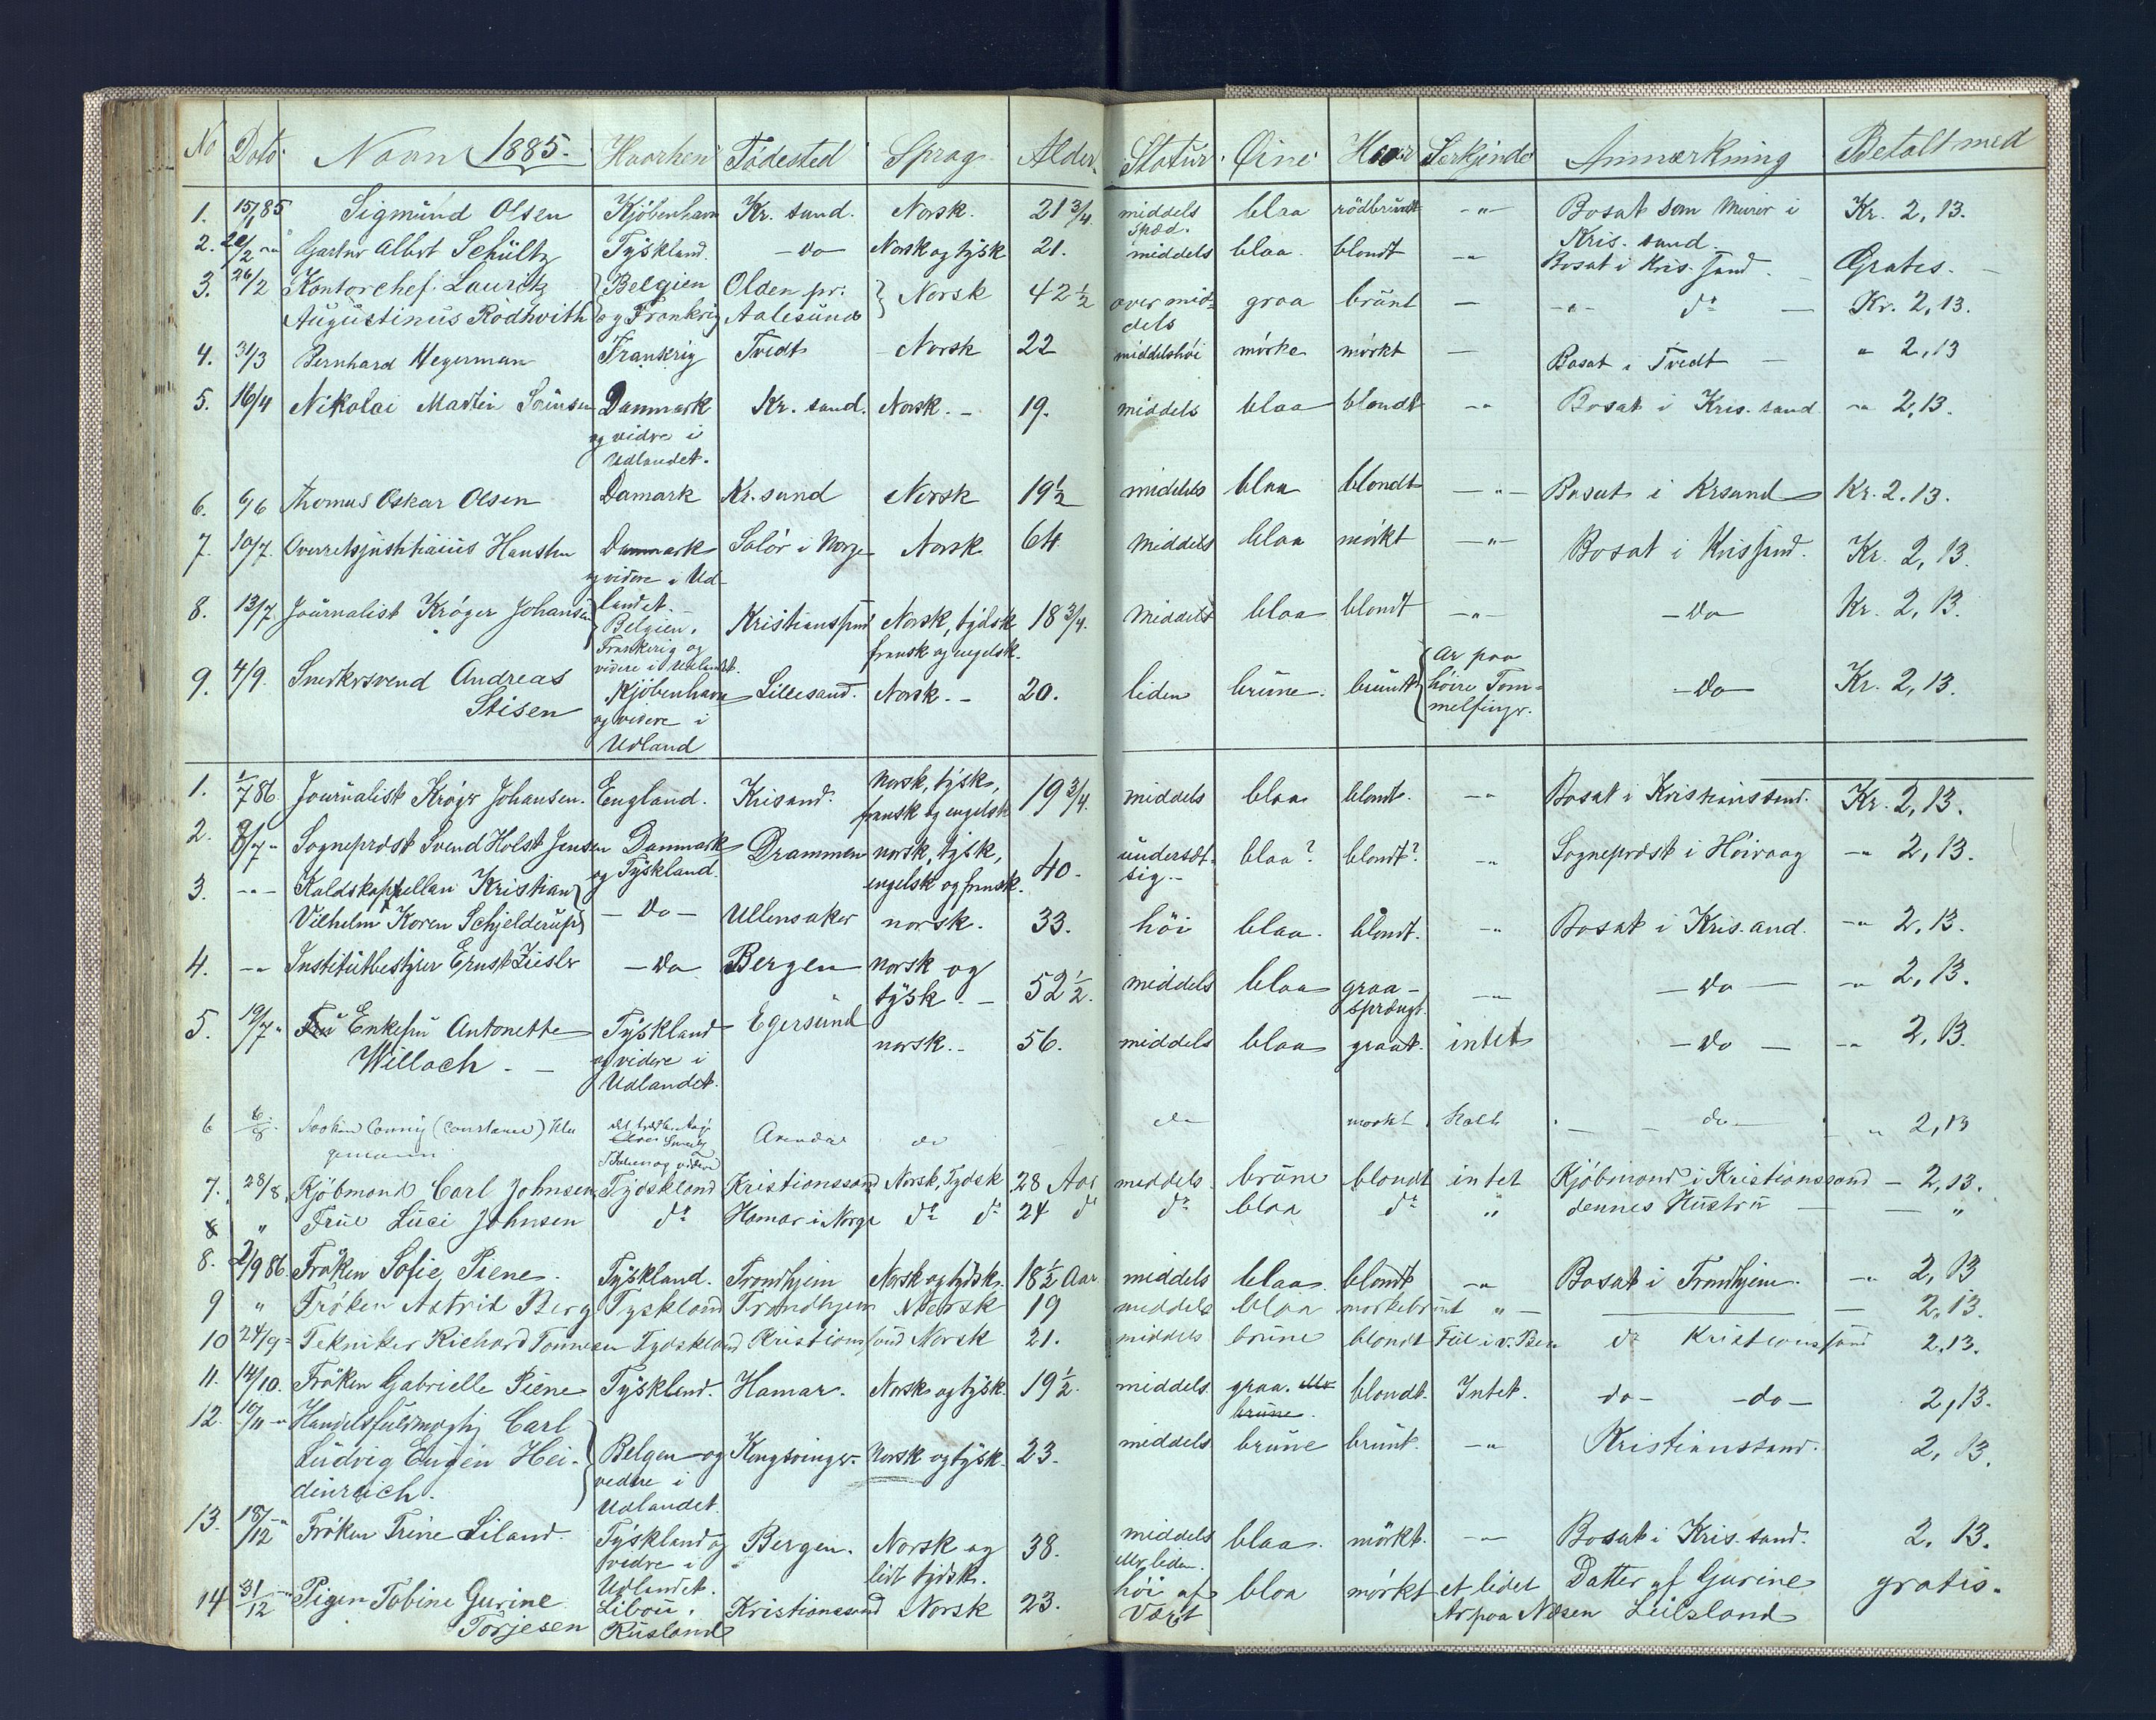 No Dato Navn 1885. Hvorhen Födested Sprog Alder. Statur. Öine Haar Særkjende Anmærkning Betalt med
1. 15/1 85 Sigmund Olsen Kjöbenhavn Kr. sand. Norsk. 21 3/4 middels spæd. blaa rödbrundt -"- Bosat som Murer i Kris. sand. Kr. 2,13.
2. 20/2 -"- Gartner Albert Schültz Tyskland. -do- Norsk og tysk 21. middels blaa. blondt -"- Bosat i Kris. sand. - Gratis. -
3. 26/2 Kontorchef. Lauritz Belgien Olden pr. Norsk 42 1/2 over mid- graa brunt — -"- do — Kr. 2,13.
Augustinus Rödhvith og Frankrig Aalesund dels
4. 31/3 Bernhard Megerman Frankrig Tvedt - Norsk 22 middelshöi mörke mörkt — Bosat i Tvedt - " 2,13
5. 16/4 Nikolai Martin Sörensen Danmark Kr. sand. Norsk. - 19. middels blaa blondt -"- Bosat i Kris. sand. -"- 2,13.
og vidre i
Udlandet.
6. 6/6 Thomas Oskar Olsen Damark Kr. sand Norsk 19 1/2 middels blaa blondt -"- Bosat i Krsand Kr. 2.13.
7. 10/7. Overretsjustitiarius Hansten Danmark Solör i Norge Norsk 64 Middels blaa mörkt -"- Bosat i Krissand. Kr. 2,13.
og videre i Ud-
landet. -
8. 13/7 Journalist Kröger Johansen Belgien, Kristianssand Norsk, tydsk 18 3/4. Middels blaa blondt -"- -do Kr. 2,13.
Frankrig og fransk og engelsk.
videre i Udlandet.
9. 4/9. Snedkersvend Andreas Kjöbenhavn Lillesand. Norsk. - 20. liden brune. brunt Ar paa -do- Kr. 2,13.
Stisen og videre i höire Tom-
Udland melfinger.
1. 1/7 86. Journalist Kröger Johansen. Eengland. Krisand. norsk, tysk, 19 3/4. middels blaa blondt. -"- Bosat i Kristianssand. Kr. 2,13.
fransk og engelsk
2. 8/7 " Sogneprest Svend Holst Jensen Danmark Drammen norsk, tysk, 40. undersæt- blaa? blondt? -"- Sogneprest i Höivaag -"- 2,13.
og Tyskland. engelsk og fransk. sig. -
3. -"- Kaldskappellan Kristian
Vilhelm Koren Schjelderup -do- Ullensaker norsk. 33. höi blaa. blondt. -"- Bosat i Kris.and. -"- 2,13.
4. -"- Institutbestyrer Ernst Ziesler -do Bergen norsk og 52 1/2. middels blaa graa- -"- -do- -"- 2,13.
tysk. - sprængt.
5. 19/7 " Fru Enkefru Antonette Tyskland Egersund norsk. - 56. middels blaa graat. intet -do- -"- 2,13.
Willoch. - og videre i
Udlandet.
6 6/8 (Constance) Arendal do do morkt Halt do " 2,13
7. 28/8. Kjöbmand Carl Johnsen Tydskland Kristianssand Norsk, Tydsk 28 Aar middels brune blondt intet Kjöbmand i Kristianssand - 2,13.
8 " Frue Luci Johnsen do Hamar i Norge do do 24 do do blaa do " dennes Hustru — — "
8. 2/9 86. Fröken Sofie Piene. Tyskland. Trondhjem Norsk og tydsk. 18 1/2 Aar middels blaa. blondt -"- Bosat i Trondhjem. -"- 2,13
9 " Fröken Astrid Berg Tyskland Trondhjem Norsk 19 middels blaa morkebrunt " — — 2,13.
10 24/9 - Tekniker Richard Tonnesen Tydskland Kristianssand Norsk 21. middels brune blondt Feil i v. Ben do Kristianssand 2,13.
11. 14/10. Fröken Gabrielle Piene Tyskland. Hamar. Norsk og tysk. 19 1/2. middels. graa. eller blondt. Intet. -do- -do- 2,13.
brune.
12. 10/11 -"- Handelsfuldmægtig Carl
Ludvig Eugen Hei- Belgen og Kongsvinger. Norsk og tysk. 23. middels brune brunt. -"- Kristianssand. 2,13.
dinreich. vedere i
Udlandet.
13. 18/12 -"- Fröken Trine Liland. Tyskland og Bergen. Norsk og 38. middels blaa. mörkt. -"- Bosat i Kris. sand. 2.13.
vedre i lidt tydsk. eller liden.
Udlandet.
14 31/12 -"- Pigen Tobine Gurine Libau, Kristianssand Norsk 23. höi af blaa mörkt et lidet Datter af Gurine gratis.
Torjesen Rusland Væxt Ar paa Næsen Leilsland